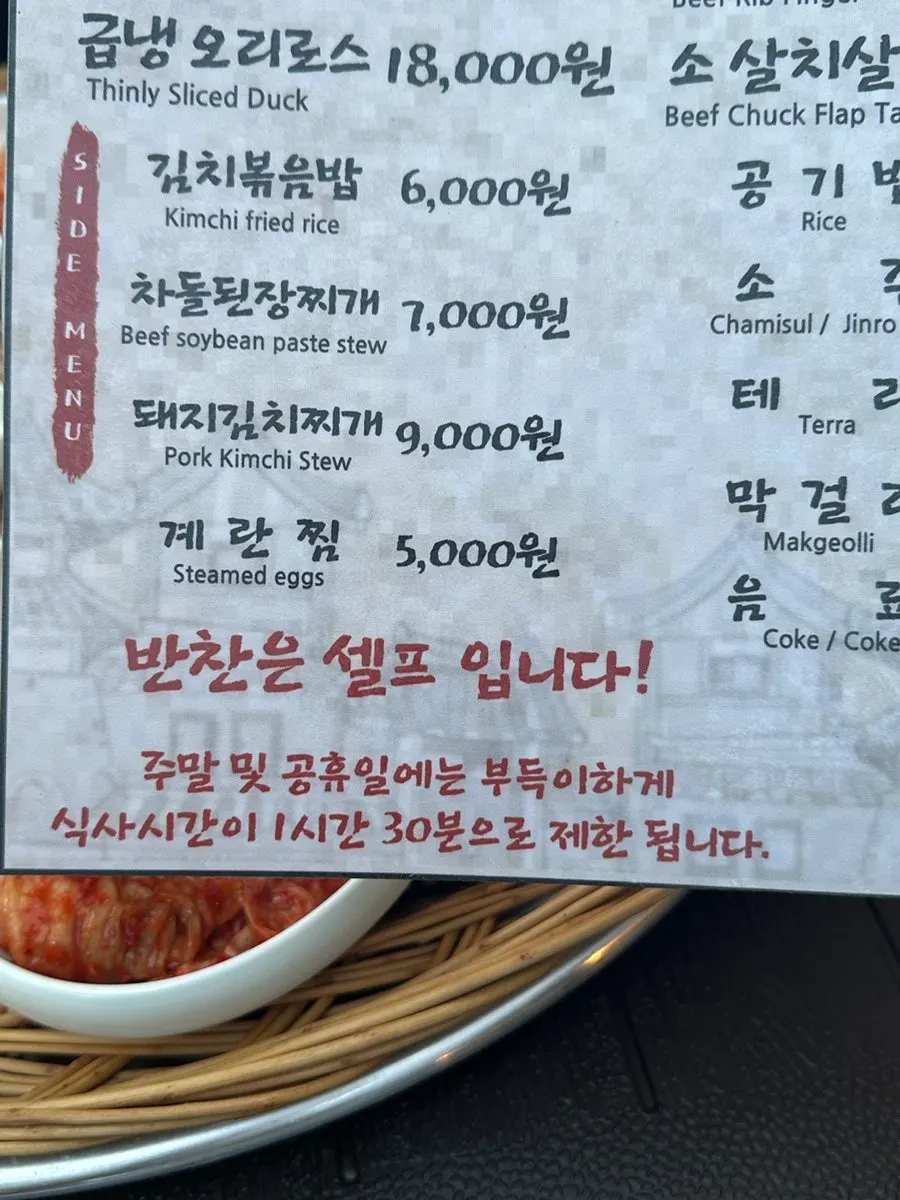 급냉 오리로스 18,000원
Thinly Sliced Duck
SIDE MENU
김치볶음밥 6,000원
Kimchi fried rice
차돌된장찌개 7,000원
Beef soybean paste stew
돼지김치찌개 9,000원
Pork Kimchi Stew
계란찜 5,000원
Steamed eggs
Beef Rib Finger
소 살치살
Beef Chuck Flap
공기
Rice
소
Chamisul / Jinro
테
Terra
막걸
Makgeolli
음
Coke / Coke
반찬은 셀프 입니다!
주말 및 공휴일에는 부득이하게
식사시간이 1시간 30분으로 제한 됩니다.